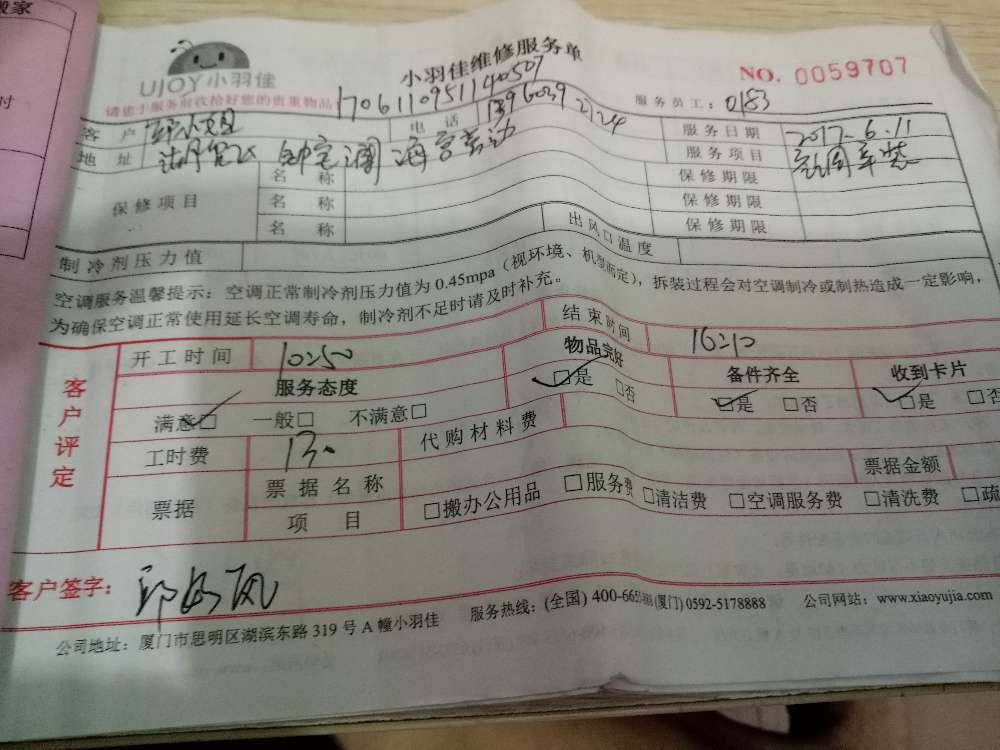 搬家
UJOY 小羽佳
小羽佳维修服务单
NO. 0059707
请您于服务前收拾好您的贵重物品
1706110951140507
服务员工: 0183
客户 小姐 电话 13960392124 服务日期 2017-6.11
地址 服务项目
保修项目 名称 保修期限
名称 保修期限
名称 保修期限
制冷剂压力值 出风口温度
空调服务温馨提示: 空调正常制冷剂压力值为 0.45mpa (视环境、机型而定), 拆装过程会对空调制冷或制热造成一定影响,
为确保空调正常使用延长空调寿命, 制冷剂不足时请及时补充。
客户评定
开工时间 10:50 结束时间 16:10
服务态度 物品完好 备件齐全 收到卡片
满意□ 一般□ 不满意□ □是 □否 □是 □否 □是 □否
工时费 130 代购材料费
票据 票据名称 票据金额
项目 □搬办公用品 □服务费 □清洁费 □空调服务费 □清洗费 □疏
客户签字:
公司地址: 厦门市思明区湖滨东路 319 号 A 幢小羽佳 服务热线: (全国) 400-665 (厦门) 0592-5178888 公司网站: www.xiaoyujia.com